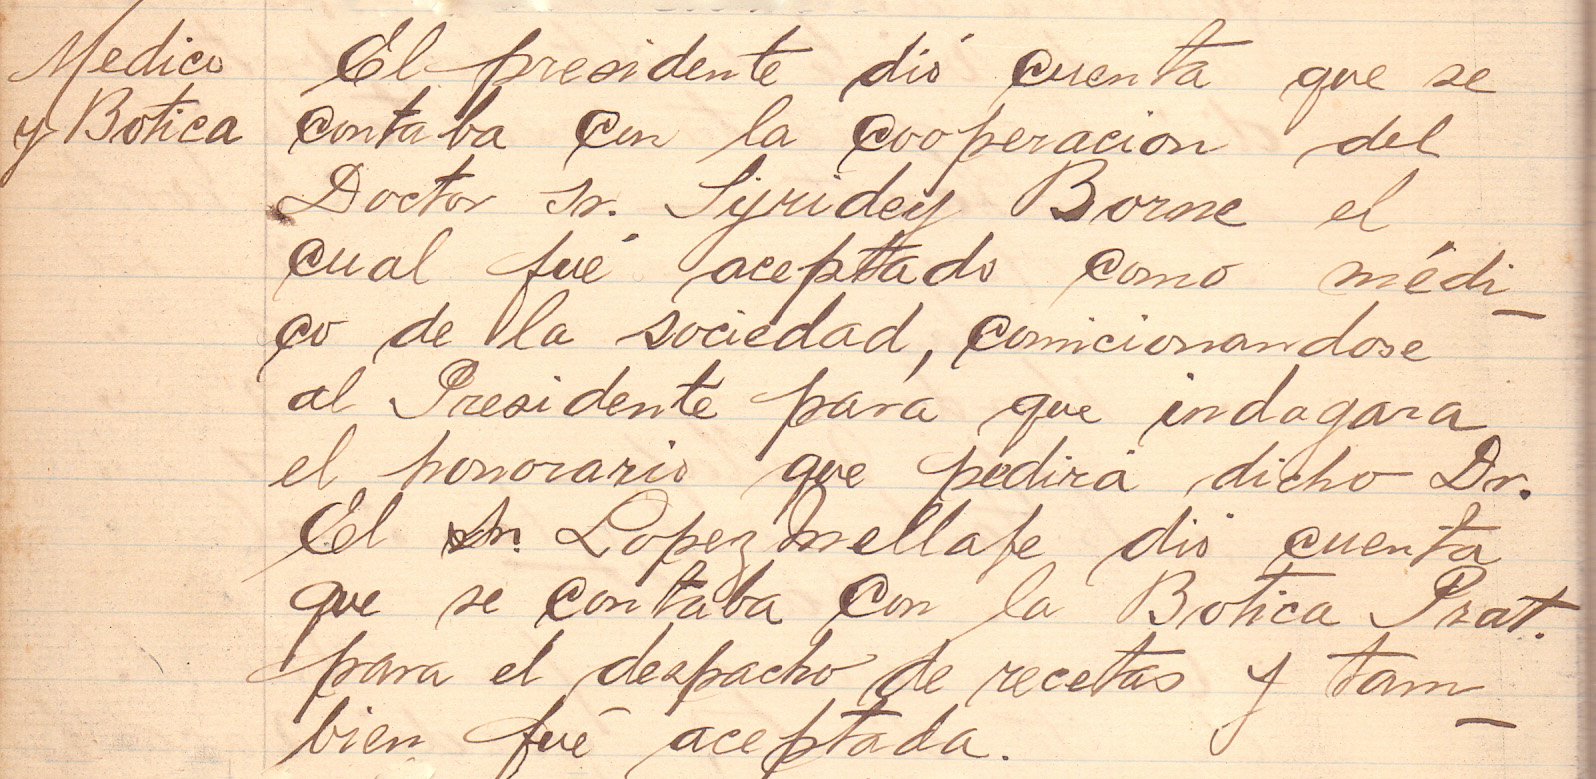 Medico
y Botica
El presidente dió cuenta que se
contaba con la cooperacion del
Doctor Sr. Syridey Borne el
cual fué aceptado como médi_
co de la sociedad, comicionandose
al Presidente para que indagara
el honorario que pedirá dicho Dr.
El Sr. Lopez Mellafe dió cuenta
que se contaba con la Botica Prat.
para el despacho de recetas y tam_
bien fué aceptada.